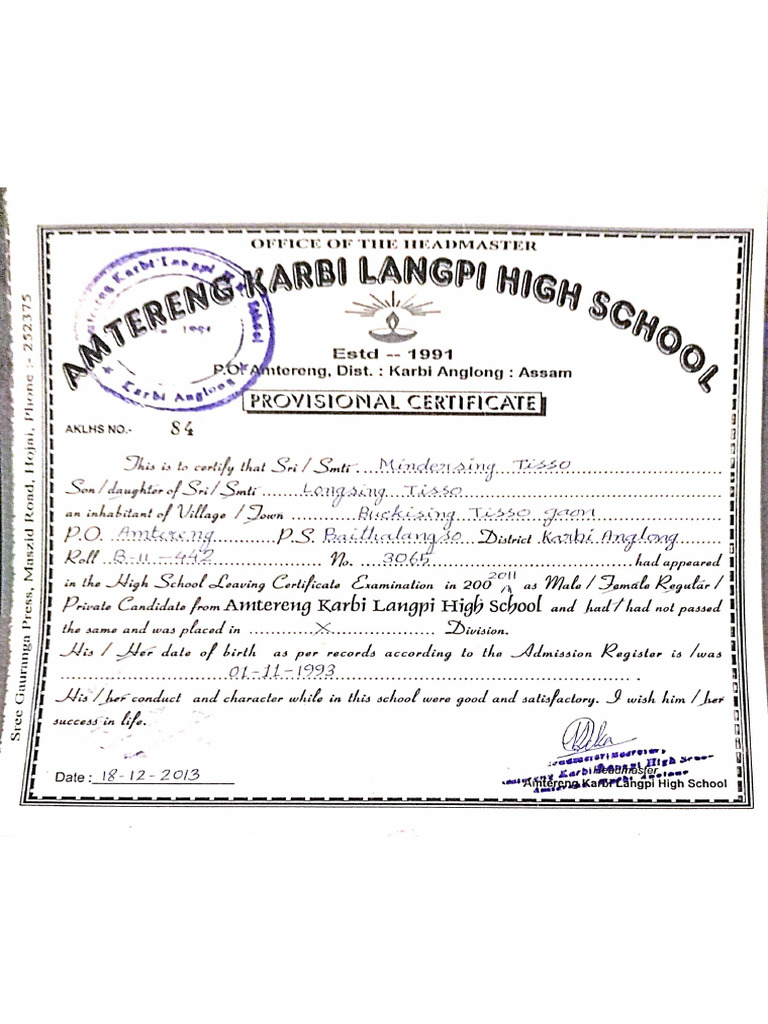 OFFICE OF THE HEADMASTER
AMTERENG KARBI LANGPI HIGH SCHOOL
Estd -- 1991
P.O. Amtereng, Dist. : Karbi Anglong : Assam
PROVISIONAL CERTIFICATE
AKLHS NO.- 84
This is to certify that Sri / Smti ....Mindensing Tisso
Son / daughter of Sri / Smti ........Longsing Tisso
an inhabitant of Village / Town ............Buckising Tisso gaon
P.O. Amtereng............P.S. Baithalangso District Karbi Anglong
Roll B-11-442 No. 3065 had appeared
in the High School Leaving Certificate Examination in 200 2011 as Male / Female Regular /
Private Candidate from Amtereng Karbi Langpi High School and had / had not passed
the same and was placed in ............X.................... Division.
His / Her date of birth as per records according to the Admission Register is /was
01-11-1993
His / her conduct and character while in this school were good and satisfactory. I wish him / her
success in life.
Date : 18-12-2013
Headmaster
Amtereng Karbi Langpi High School
Sree Gauranga Press, Maszid Road, Hojai, Phone :- 252375
Amtereng Karbi Langpi High School
1991
Karbi Anglong